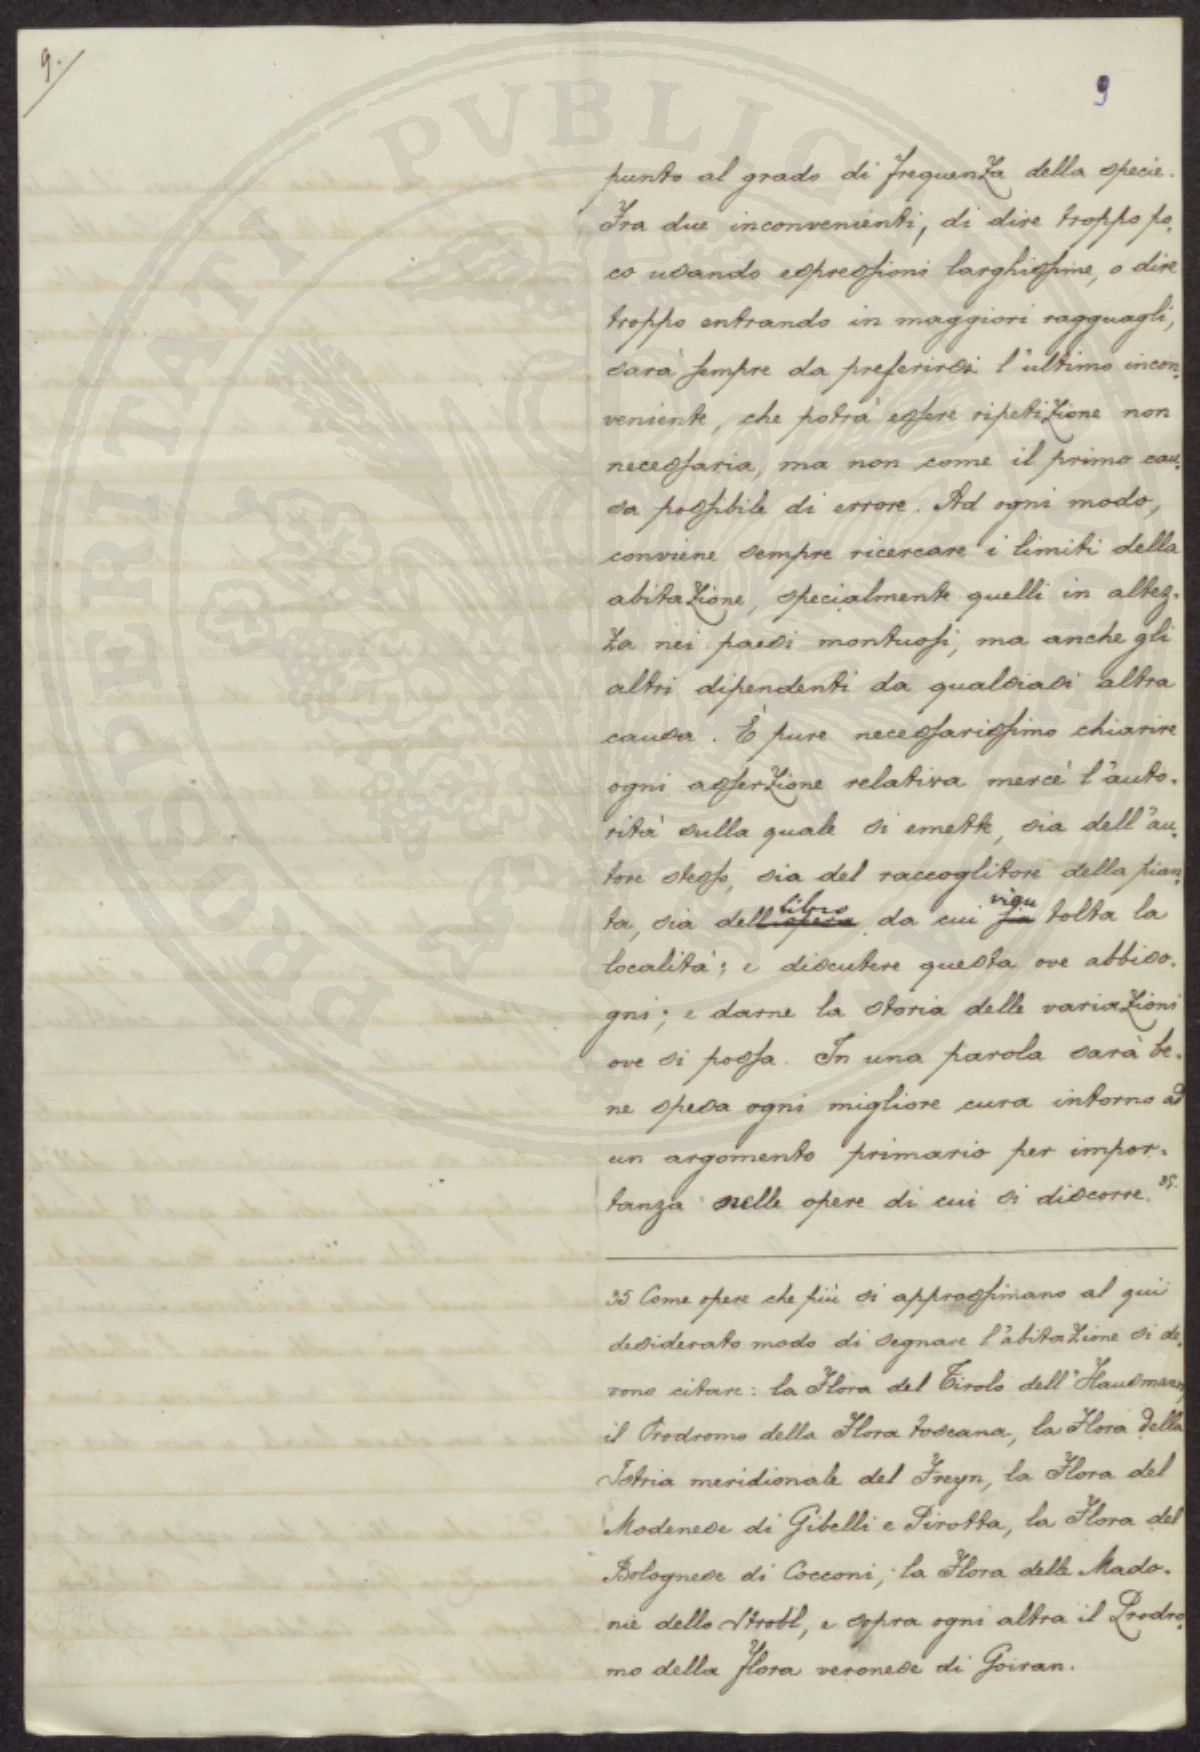 9.
9
punto al grado di frequenza della specie.
Fra due inconvenienti, di dire troppo po-
co usando espressioni larghissime, o dire
troppo entrando in maggiori ragguagli,
sarà sempre da preferirsi l'ultimo incon-
veniente, che potrà essere ripetizione non
necessaria, ma non come il primo cau-
sa possibile di errore. Ad ogni modo,
conviene sempre ricercare i limiti della
abitazione, specialmente quelli in altez-
za nei paesi montuosi, ma anche gli
altri dipendenti da qualsiasi altra
causa. È pure necessarissimo chiarire
ogni asserzione relativa mercè l'auto-
rità sulla quale si emette, sia dell'au-
tore stesso, sia del raccoglitore della pian-
libro
ta, sia dell'opera da cui fu tolta la
località; e discutere questa ove abbiso-
gni; e darne la storia delle variazioni
ove si possa. In una parola sarà be-
ne spesa ogni migliore cura intorno ad
un argomento primario per impor-
tanza nelle opere di cui si discorre. 35.
35 Come opere che più si approssimano al qui
desiderato modo di segnare l'abitazione si de-
vono citare: la Flora del Tirolo dell'Hausmann,
il Prodromo della Flora toscana, la Flora della
Istria meridionale del Freyn, la Flora del
Modenese di Gibelli e Pirotta, la Flora del
Bolognese di Cocconi, la Flora delle Mado-
nie dello Strobl, e sopra ogni altra il Prodro-
mo della flora veronese di Goiran.
PROSPERITATI PVBLICAE